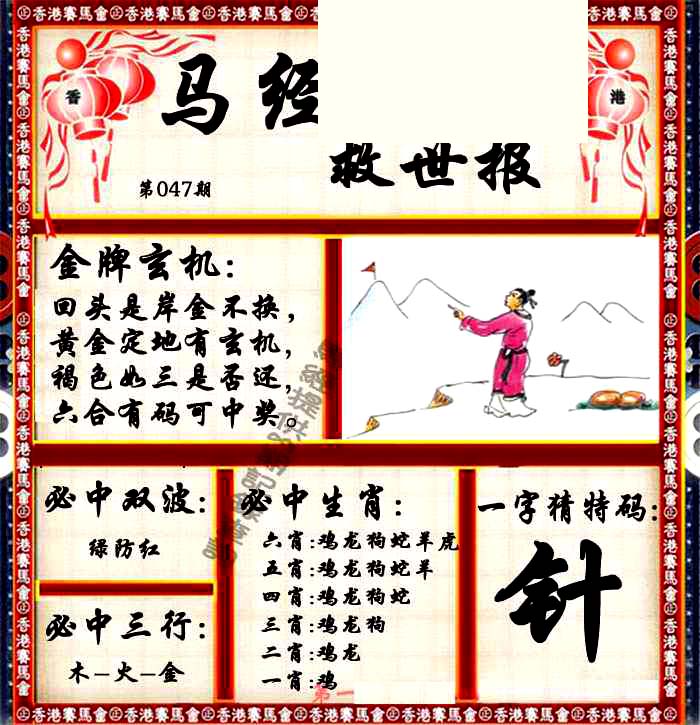 香港賽馬會
香
马经
港
救世报
第047期
金牌玄机：
回头是岸金不换，
黄金定地有玄机，
褐色如三是否还，
六合有码可中奖。
必中双波：
绿防红
必中三行：
木-火-金
必中生肖：
六肖:鸡龙狗蛇羊虎
五肖:鸡龙狗蛇羊
四肖:鸡龙狗蛇
三肖:鸡龙狗
二肖:鸡龙
一肖:鸡
第一
一字猜特码：
针